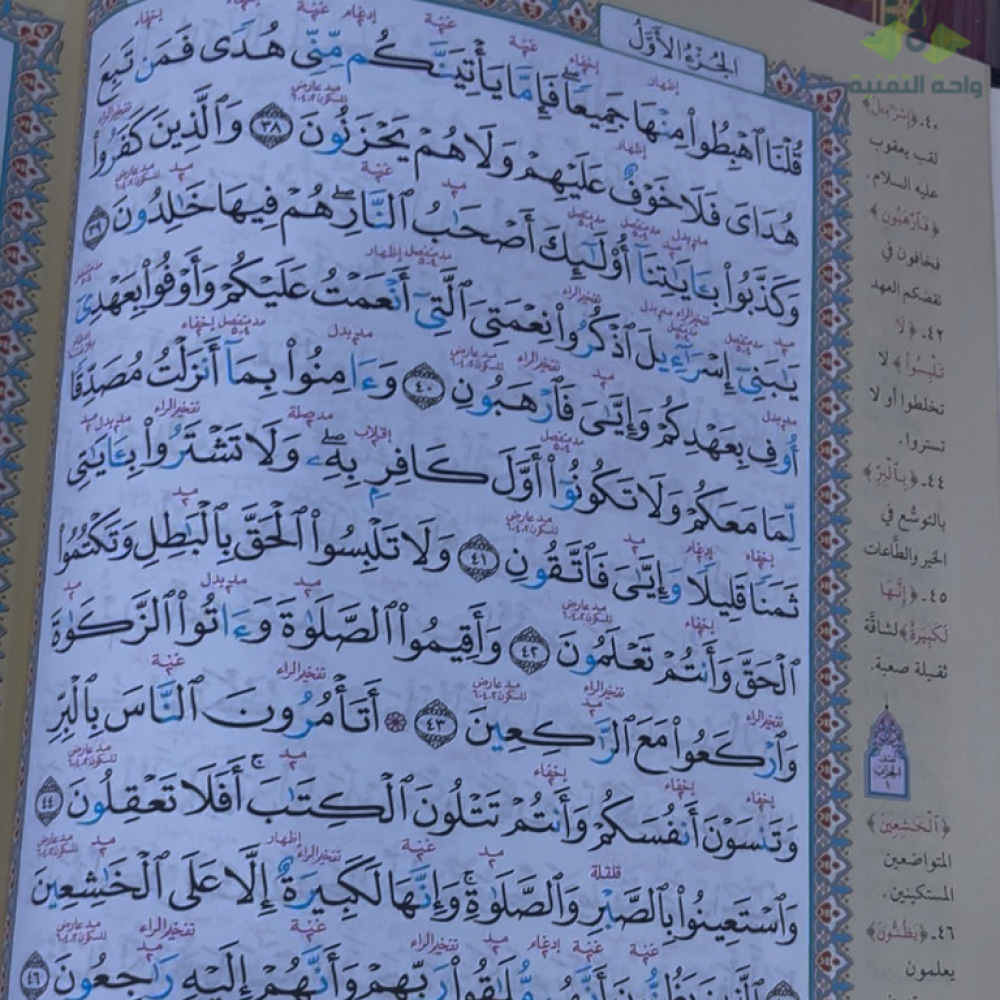 واحة التقنية
الجزء الأول
قُلْنَا ٱهْبِطُوا۟ مِنْهَا جَمِيعًا ۖ فَإِمَّا يَأْتِيَنَّكُم مِّنِّى هُدًى فَمَن تَبِعَ
هُدَاىَ فَلَا خَوْفٌ عَلَيْهِمْ وَلَا هُمْ يَحْزَنُونَ ٣٨ وَٱلَّذِينَ كَفَرُوا۟
وَكَذَّبُوا۟ بِـَٔايَـٰتِنَآ أُو۟لَـٰٓئِكَ أَصْحَـٰبُ ٱلنَّارِ ۖ هُمْ فِيهَا خَـٰلِدُونَ ٣٩
يَـٰبَنِىٓ إِسْرَٰٓءِيلَ ٱذْكُرُوا۟ نِعْمَتِىَ ٱلَّتِىٓ أَنْعَمْتُ عَلَيْكُمْ وَأَوْفُوا۟ بِعَهْدِىٓ
أُوفِ بِعَهْدِكُمْ وَإِيَّـٰىَ فَٱرْهَبُونِ ٤٠ وَءَامِنُوا۟ بِمَآ أَنزَلْتُ مُصَدِّقًا
لِّمَا مَعَكُمْ وَلَا تَكُونُوٓا۟ أَوَّلَ كَافِرٍۭ بِهِۦ ۖ وَلَا تَشْتَرُوا۟ بِـَٔايَـٰتِى
ثَمَنًا قَلِيلًا وَإِيَّـٰىَ فَٱتَّقُونِ ٤١ وَلَا تَلْبِسُوا۟ ٱلْحَقَّ بِٱلْبَـٰطِلِ وَتَكْتُمُوا۟
ٱلْحَقَّ وَأَنتُمْ تَعْلَمُونَ ٤٢ وَأَقِيمُوا۟ ٱلصَّلَوٰةَ وَءَاتُوا۟ ٱلزَّكَوٰةَ
وَٱرْكَعُوا۟ مَعَ ٱلرَّٰكِعِينَ ٤٣ أَتَأْمُرُونَ ٱلنَّاسَ بِٱلْبِرِّ
وَتَنسَوْنَ أَنفُسَكُمْ وَأَنتُمْ تَتْلُونَ ٱلْكِتَـٰبَ ۚ أَفَلَا تَعْقِلُونَ ٤٤
وَٱسْتَعِينُوا۟ بِٱلصَّبْرِ وَٱلصَّلَوٰةِ ۚ وَإِنَّهَا لَكَبِيرَةٌ إِلَّا عَلَى ٱلْخَـٰشِعِينَ
ٱلَّذِينَ يَظُنُّونَ أَنَّهُم مُّلَـٰقُوا۟ رَبِّهِمْ وَأَنَّهُمْ إِلَيْهِ رَٰجِعُونَ ٤٦
٤٠-﴿إِسْرَٰٓءِيلَ﴾
لقب يعقوب
عليه السلام.
﴿فَٱرْهَبُونِ﴾
فخافون في
نقضكم العهد
٤٢. ﴿لَا
تَلْبِسُوا۟﴾ لا
تخلطوا أو لا
تستروا.
٤٤-﴿بِٱلْبِرِّ﴾
بالتوسُّع في
الخير والطَّاعات
٤٥-﴿إِنَّهَا
لَكَبِيرَةٌ﴾ لشاقَّة
ثقيلة صعبة.
نصف
الحزب
١
﴿ٱلْخَـٰشِعِينَ﴾
المتواضعين
المستكينين.
٤٦-﴿يَظُنُّونَ﴾
يعلمون